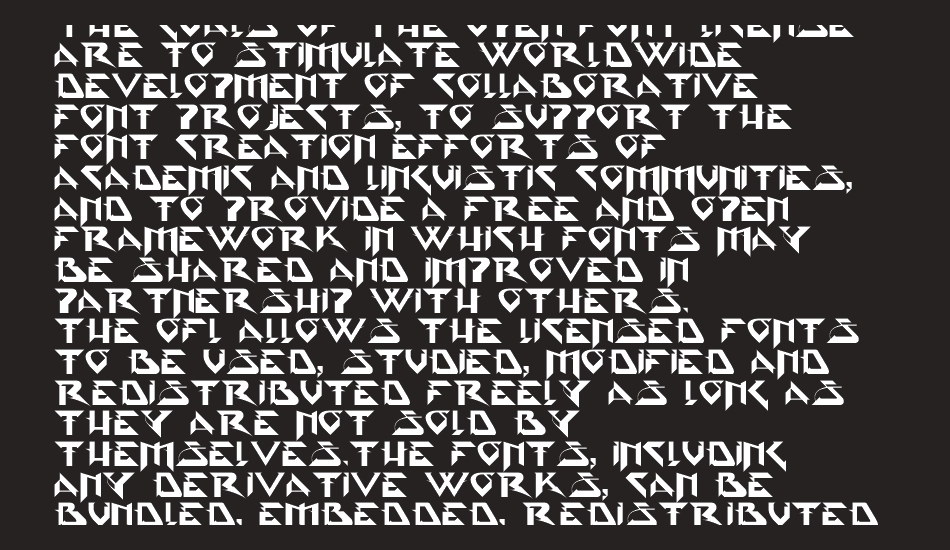 THE GOALS OF THE OPEN FONT LICENSE
ARE TO STIMULATE WORLDWIDE
DEVELOPMENT OF COLLABORATIVE
FONT PROJECTS, TO SUPPORT THE
FONT CREATION EFFORTS OF
ACADEMIC AND LINGUISTIC COMMUNITIES,
AND TO PROVIDE A FREE AND OPEN
FRAMEWORK IN WHICH FONTS MAY
BE SHARED AND IMPROVED IN
PARTNERSHIP WITH OTHERS.
THE OFL ALLOWS THE LICENSED FONTS
TO BE USED, STUDIED, MODIFIED AND
REDISTRIBUTED FREELY AS LONG AS
THEY ARE NOT SOLD BY
THEMSELVES.THE FONTS, INCLUDING
ANY DERIVATIVE WORKS, CAN BE
BUNDLED, EMBEDDED, REDISTRIBUTED